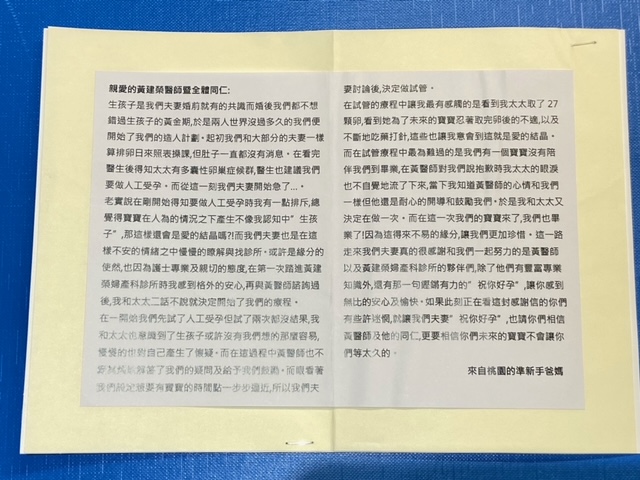 親愛的黃建榮醫師暨全體同仁:
生孩子是我們夫妻婚前就有的共識而婚後我們都不想
錯過生孩子的黃金期,於是兩人世界沒過多久的我們便
開始了我們的造人計劃。起初我們和大部分的夫妻一樣
算排卵日來照表操課,但肚子一直都沒有消息。在看完
醫生後得知太太有多囊性卵巢症候群,醫生也建議我們
要做人工受孕。而從這一刻我們夫妻開始急了...。
老實說在剛開始得知要做人工受孕時我有一點排斥,總
覺得寶寶在人為的情況之下產生不像我認知中"生孩
子",那這樣還會是愛的結晶嗎?!而我們夫妻也是在這
樣不安的情緒之中慢慢的瞭解與找診所。或許是緣分的
使然,也因為護士專業及親切的態度,在第一次踏進黃建
榮婦產科診所時我感到格外的安心,再與黃醫師諮詢過
後,我和太太二話不說就決定開始了我們的療程。
在一開始我們先試了人工受孕但試了兩次都沒結果,我
和太太也意識到了生孩子或許沒有我們想的那麼容易,
慢慢的也對自己產生了懷疑。而在這過程中黃醫師也不
厭其煩地解答了我們的疑問及給予我們鼓勵。而眼看著
我們設定想要有寶寶的時間點一步步逼近,所以我們夫
妻討論後,決定做試管。
在試管的療程中讓我最有感觸的是看到我太太取了 27
顆卵,看到她為了未來的寶寶忍著取完卵後的不適,以及
不斷地吃藥打針,這些也讓我意會到這就是愛的結晶。
而在試管療程中最為難過的是我們有一個寶寶沒有陪
伴我們到畢業,在黃醫師對我們說抱歉時我太太的眼淚
也不自覺地流了下來,當下我知道黃醫師的心情和我們
一樣但他還是耐心的開導和鼓勵我們。於是我和太太又
決定在做一次。而在這一次我們的寶寶來了,我們也畢
業了!因為這得來不易的緣分,讓我們更加珍惜。這一路
走來我們夫妻真的很感謝和我們一起努力的是黃醫師
以及黃建榮婦產科診所的夥伴們,除了他們有豐富專業
知識外,還有那一句鏗鏘有力的"祝你好孕",讓你感到
無比的安心及愉快。如果此刻正在看這封感謝信的你們
有些許迷惘,就讓我們夫妻"祝你好孕",也請你們相信
黃醫師及他的同仁,更要相信你們未來的寶寶不會讓你
們等太久的。
來自桃園的準新手爸媽